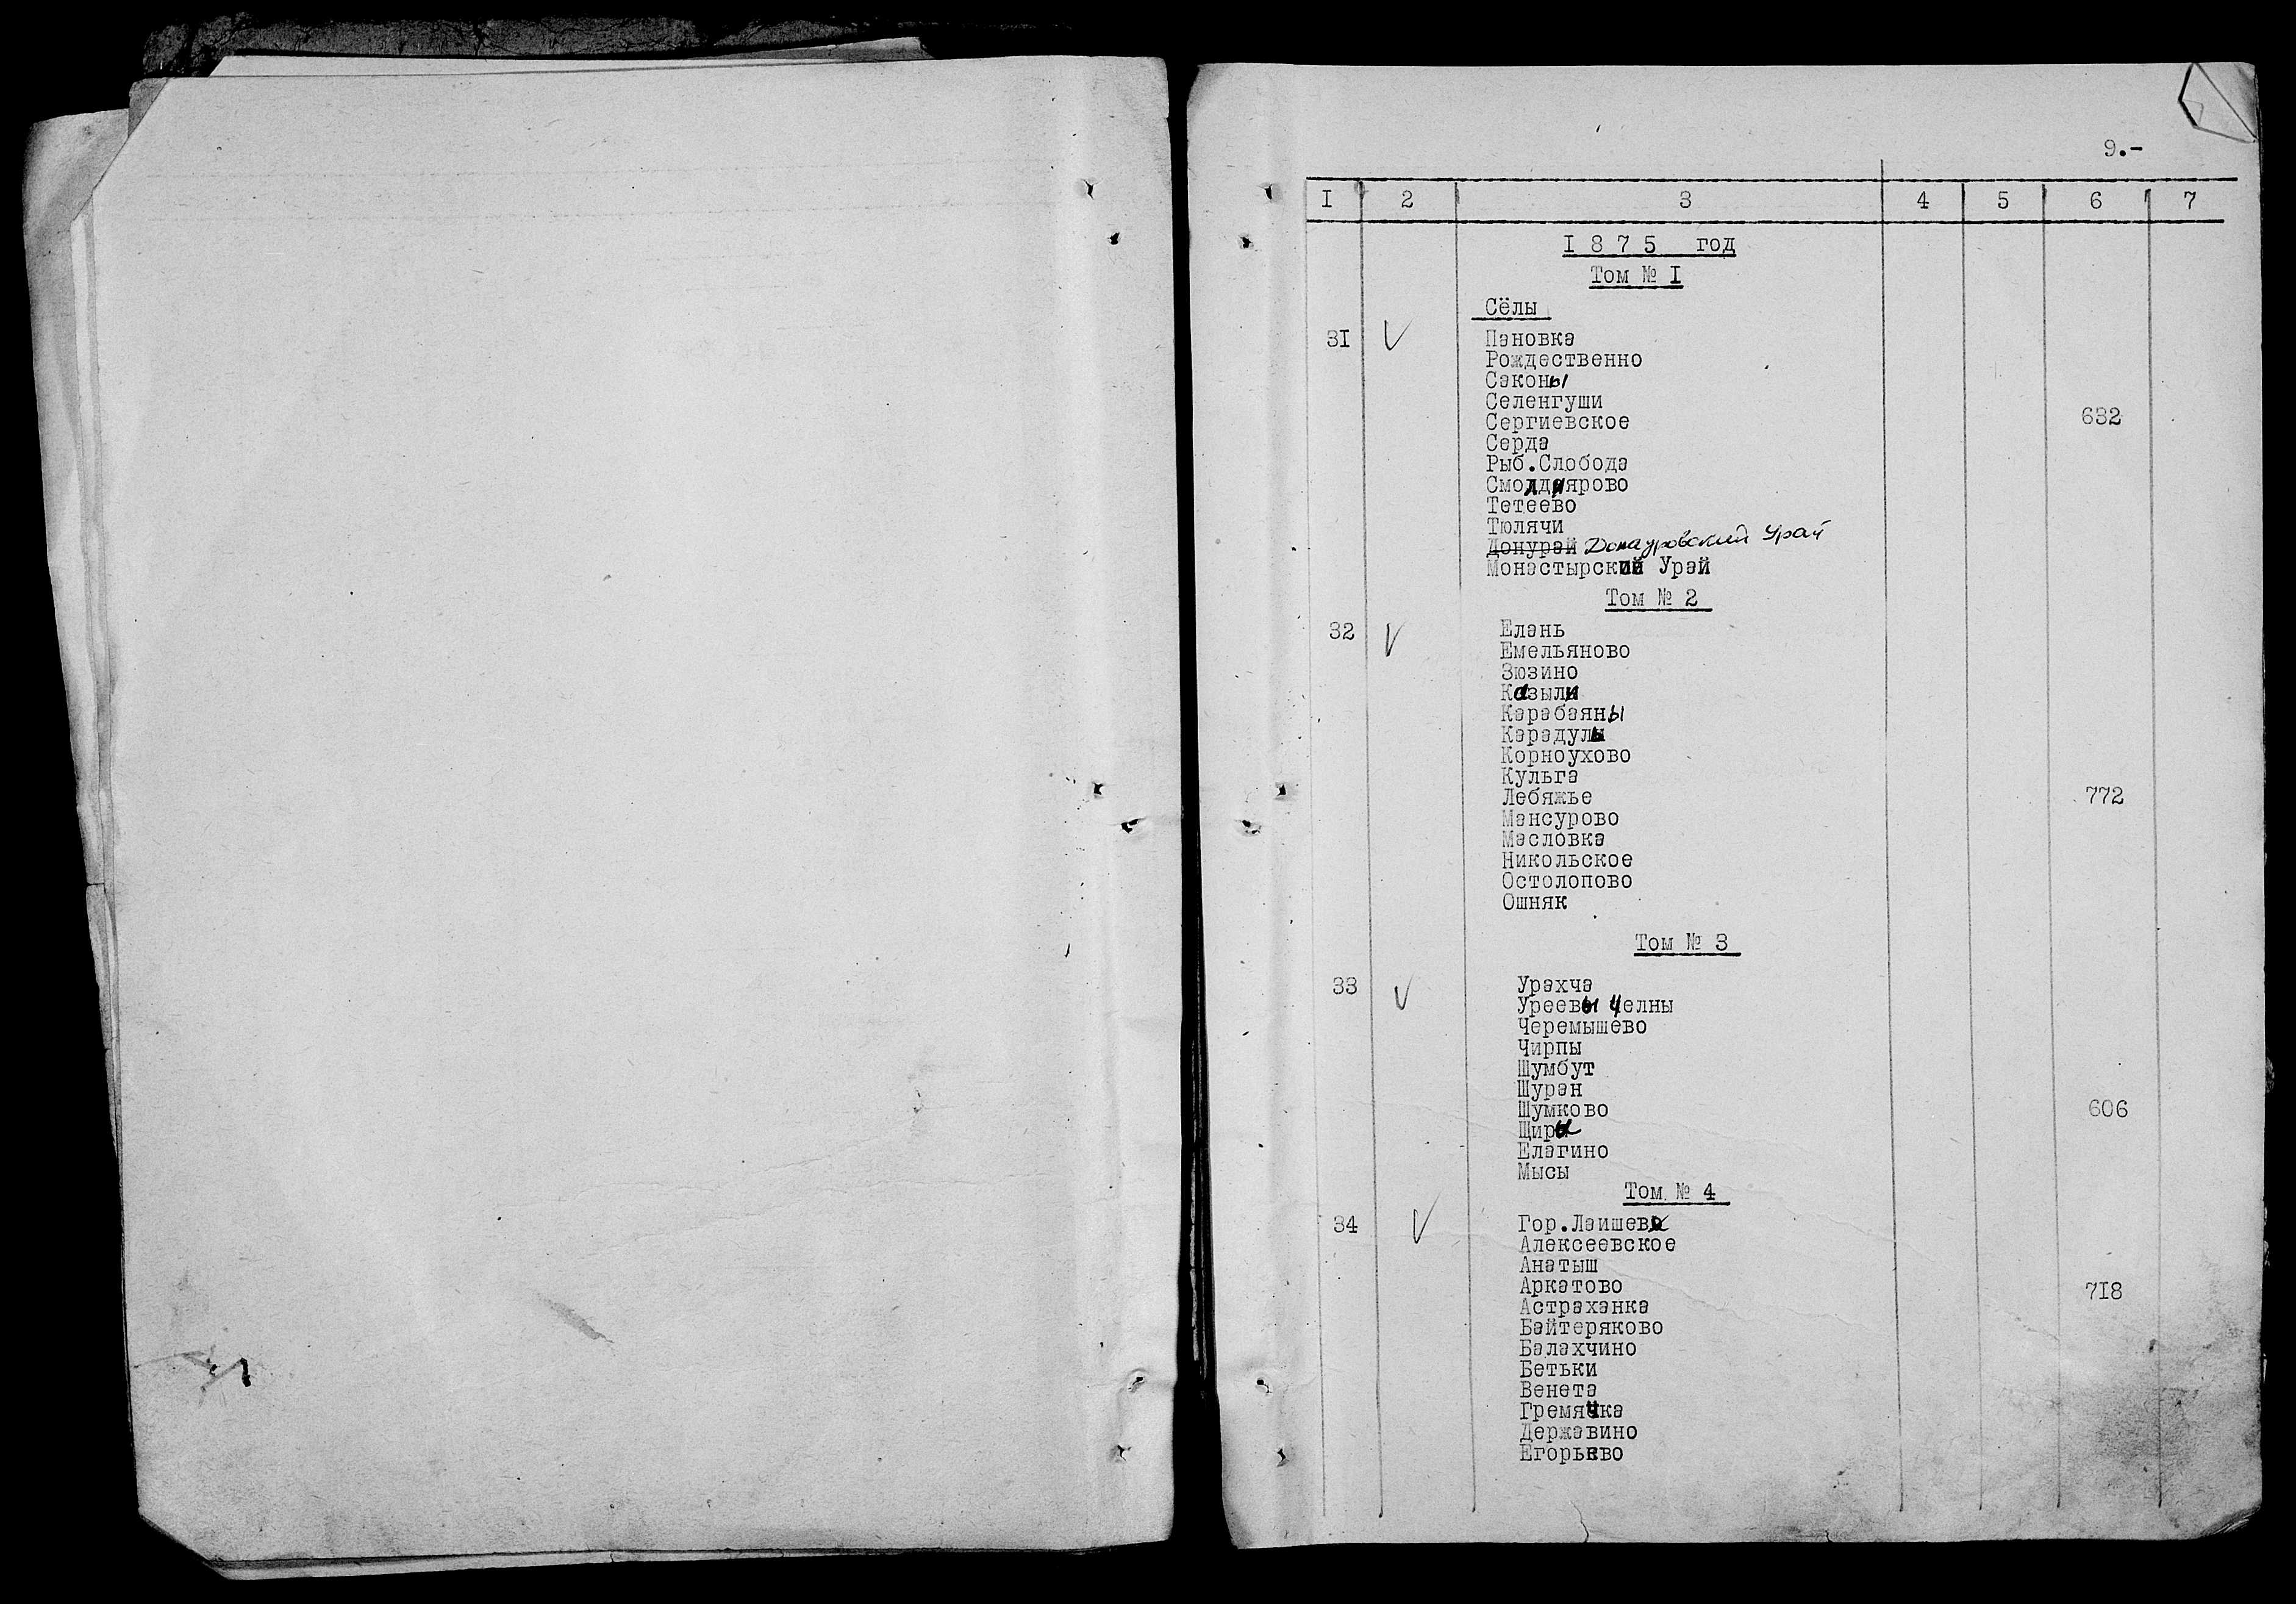 9.-
I 2 3 4 5 6 7
I 8 7 5 год
Том № I
Сёлы
31 V Пановка
Рождественно
Саконы
Селенгуши
Сергиевское 632
Серда
Рыб.Слобода
Смолдиярово
Тетеево
Тюлячи
Донурай Донауровский Урай
Монастырский Урай
Том № 2
32 V Елань
Емельяново
Зюзино
Казыли
Карабаяны
Карадулы
Корноухово
Кульга
Лебяжье 772
Мансурово
Масловка
Никольское
Остолопово
Ошняк
Том № 3
33 V Урахча
Уреевы Челны
Черемышево
Чирпы
Шумбут
Шуран
Шумково 606
Щиры
Елагино
Мысы
Том № 4
34 V Гор.Лаишева
Алексеевское
Анатыш
Аркатово 7I8
Астраханка
Байтеряково
Балахчино
Бетьки
Венета
Гремячка
Державино
Егорьево